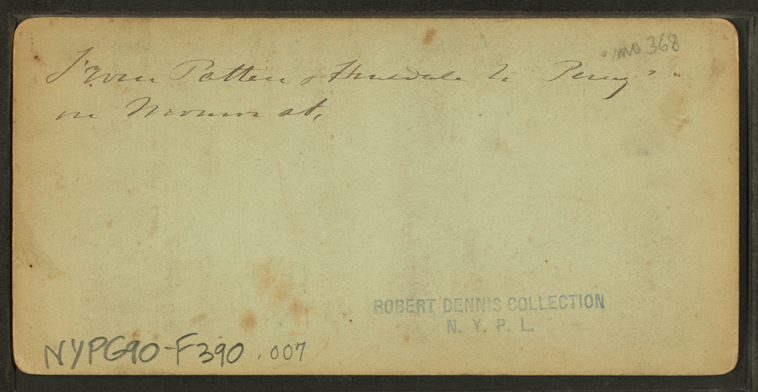 mo 368
From Patten & Hinsdale to Perry's
on Monroe st,
ROBERT DENNIS COLLECTION
N. Y. P. L.
NYPG90-F390.007